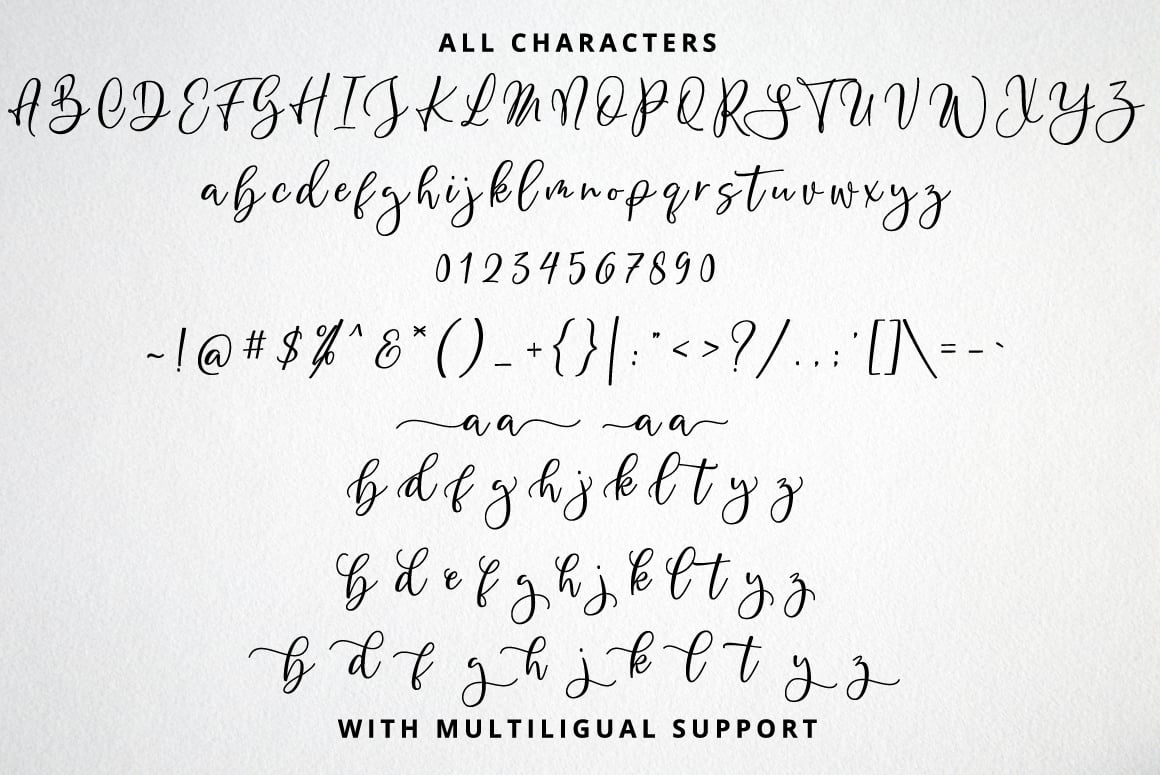 ALL CHARACTERS
A B C D E F G H I J K L M N O P Q R S T U V W X Y Z
a b c d e f g h i j k l m n o p q r s t u v w x y z
0 1 2 3 4 5 6 7 8 9 0
~ ! @ # $ % ^ & * ( ) _ + { } | : " < > ? / . , ; ' [ ] \ = - `
a a a a
b d f g h j k l t y z
b d e f g h j k l t y z
b d f g h j k l t y z
WITH MULTILIGUAL SUPPORT